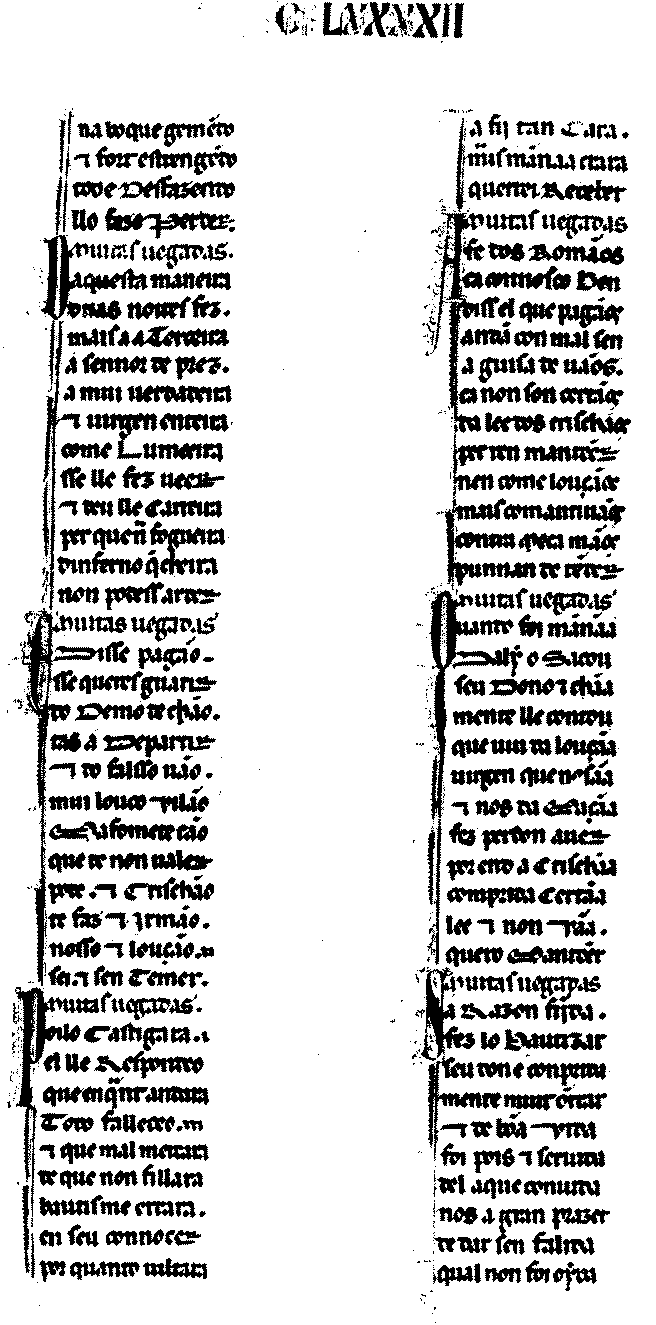 C LXXXXII
na to que gemẽto
⁊ fort estrengẽto
tod e Desfazẽto
llo fazo perder.
Muitas uegadas.
Daquesta maneira
duas noites fez.
mais aa Terceira
a sennor de prez.
a mui uerdadeira
⁊ uirgen enteira
come Lumeira
sse lle fez ueer
⁊ deu lle Carreira
per que ñ fogueira
dinferno q̃ cheira
non podess arder
Muitas uegadas
E Disse pagão.
sse queres guarir
do Demo de chão.
tas a Departir
⁊ do falsso uão.
mui louco uilão
Mafomete cão
que te non ualer
pode. ⁊ Crischão
te faz ⁊ Irmão.
nosso ⁊ loução.
sei. ⁊ sen Temer.
Muitas uegadas.
el lle Respondeo
que en q̃nt andara
Todo falleceo.
⁊ que mal mercara
de que non fillara
bautisme errara.
en seu connocer
por quanto uiltara
a fij tan Cara.
mais mãnaa crara
querrei Receber
Muitas uegadas
fe dos Romãos
ca connosco Ben
diss el que pagãos
andã con mal sen
a guisa de uãos.
ca non son certãos
da lee dos crischãos
per ren manteer
nen come louçãos
mais come mantiuãos
contra meca mãos
punnan de teer
Muitas uegadas
Quanto foi mãnãa
Daly o Sacou
seu Dono ⁊ chãa
mente lle contou
que uiu da louçãa
uirgen que nos sãa
⁊ nos da Gaaçãa
fez perdon auer
por end a Crischãa
comprida Certãa
lee ⁊ non uãa.
quero Manteer
Muitas uegadas
A Razon fijda.
fez lo Bautizar
seu don e conprida
mente muit onrrar
⁊ de bõa uida
foi pois ⁊ seruida
del aque conuida
nos a gran prazer
de dar sen falida
qual non foi oyda